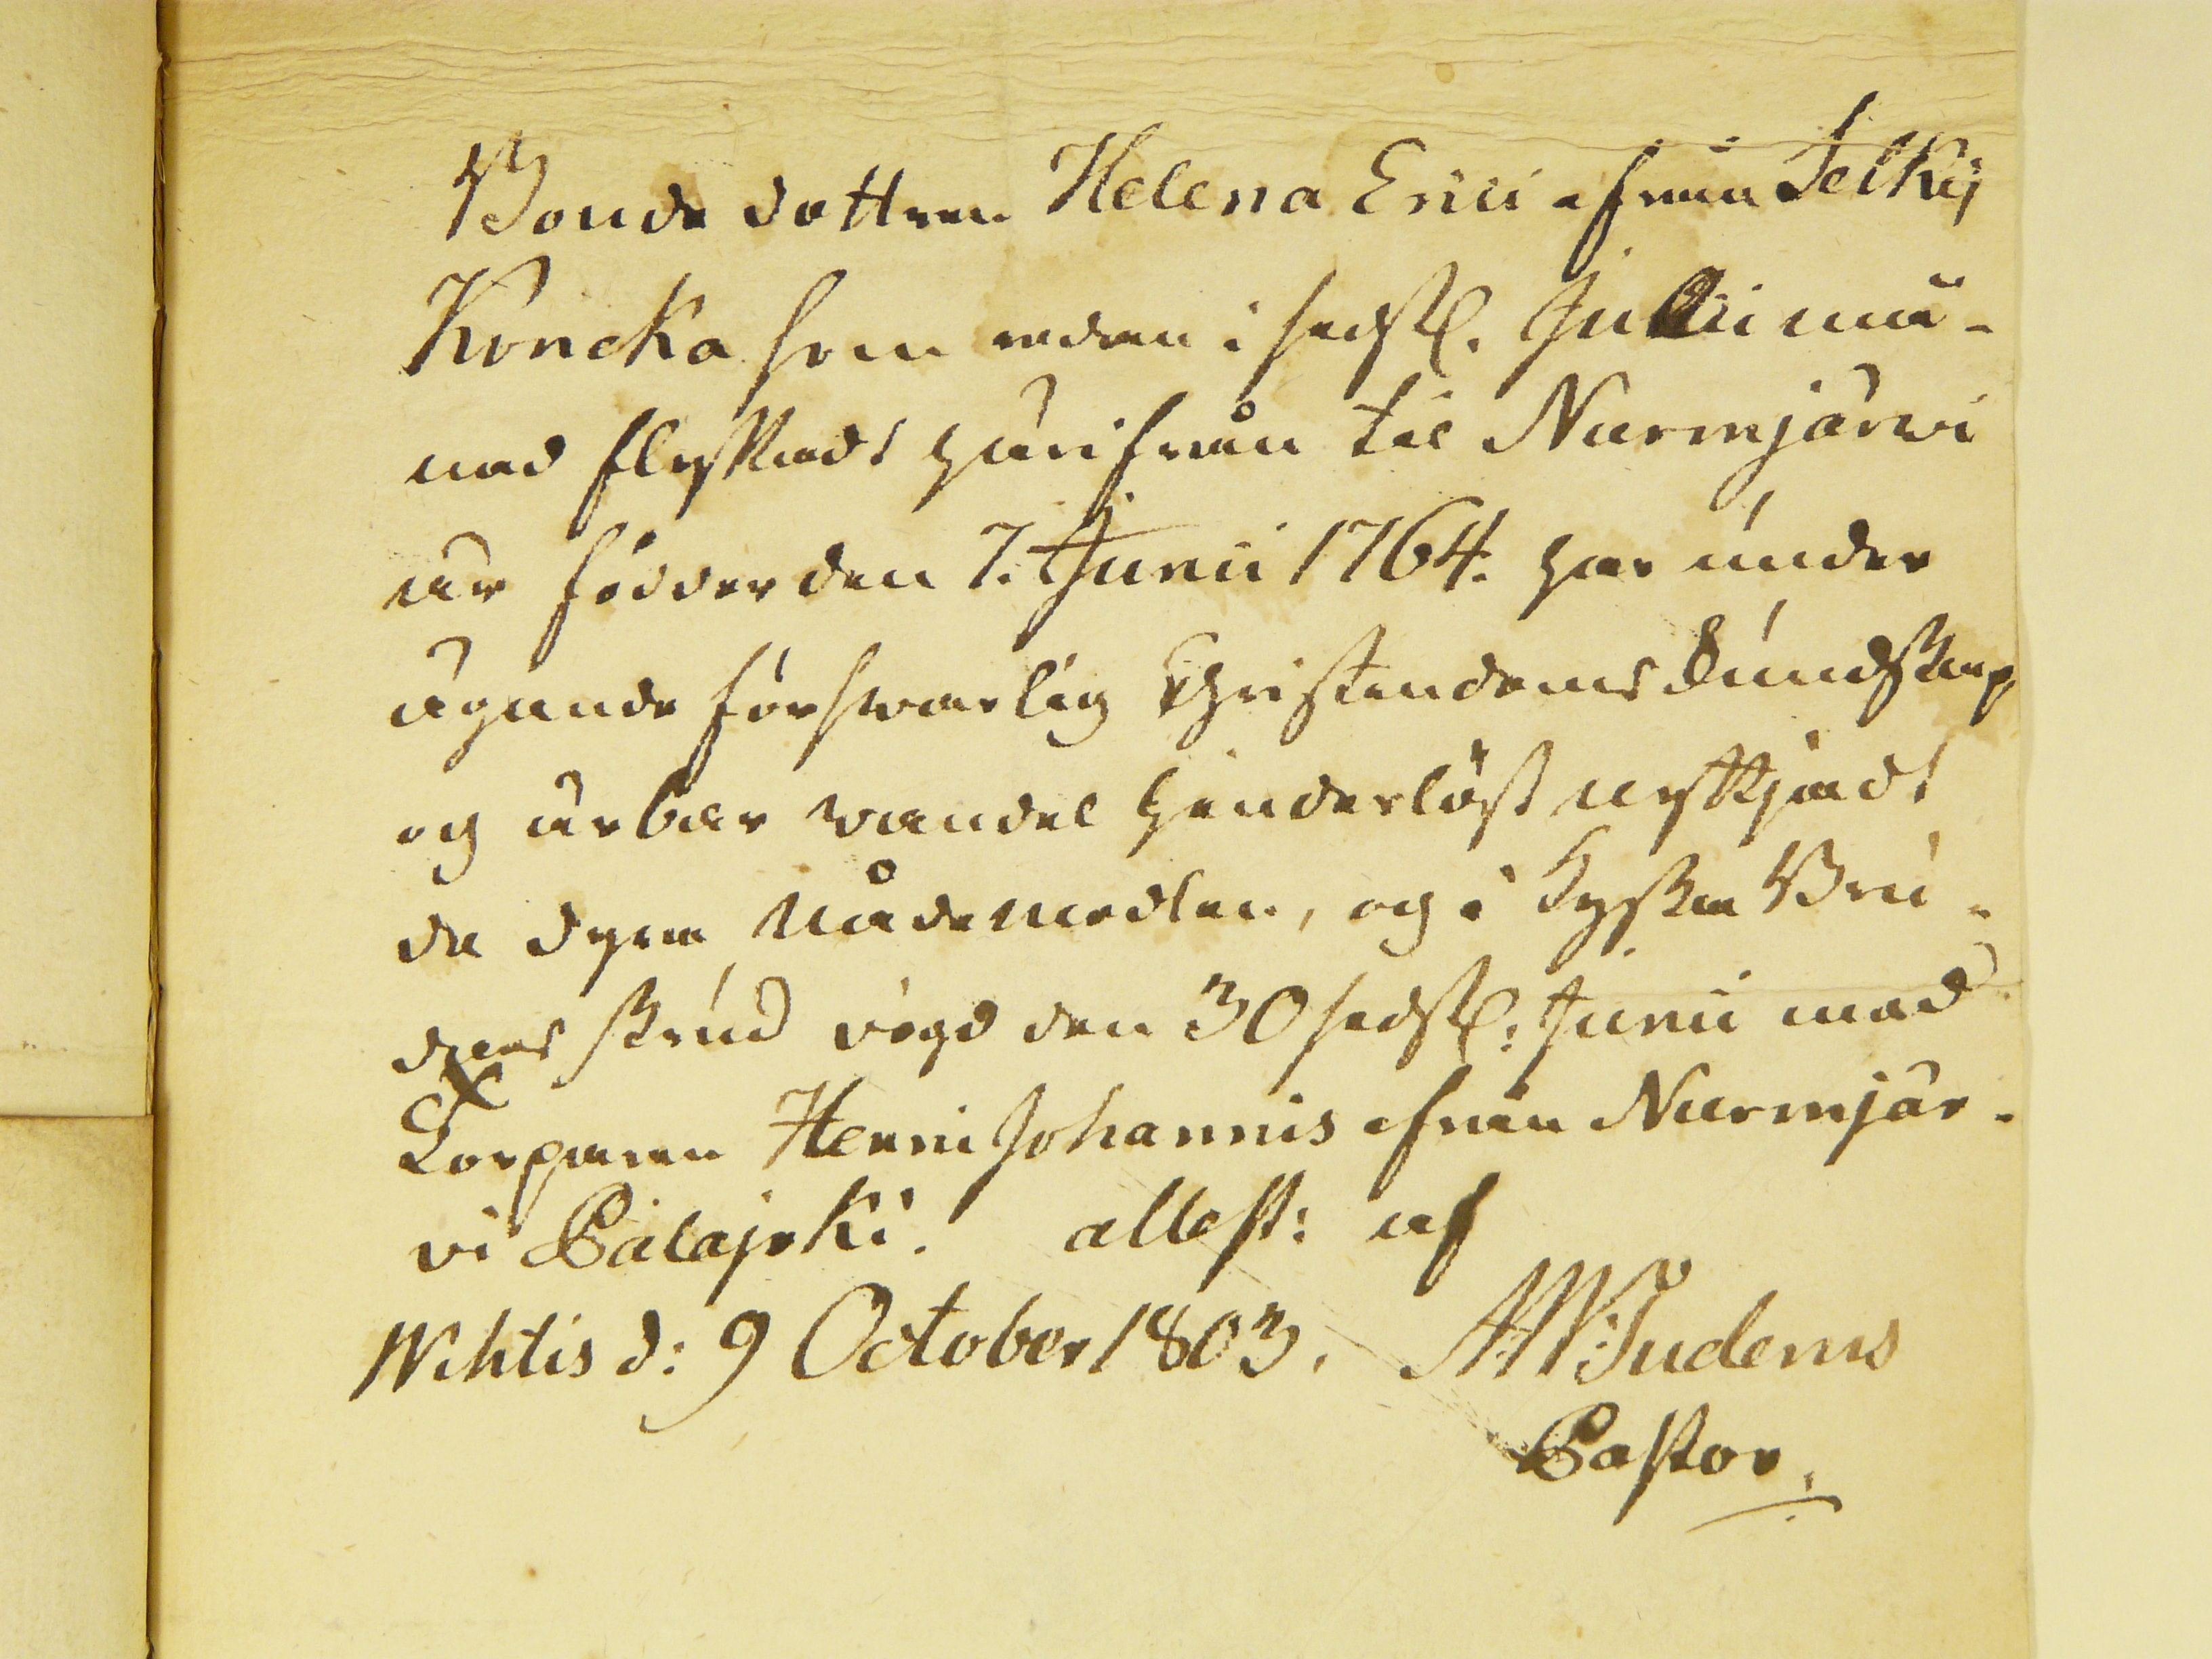 Bonde dottren Helena Erici ifrån Selkij
Koncka som redan i sedstl. Julii må-
nad flyttadt härifrån til Nurmjärvi
är född den 7. Junii 1764. har under
ägande försvarlig Christendoms kundskap
og ärbar vandel hinderlöst nyttjadt
de dyra Nådemedlen, og i kyska Bru-
dens skrud vigd den 30 sedstl: Junii med
Torparen Henric Johannis ifrån Nurmjär-
vi Palajoki. attest: af
Wihtis d: 9 October 1803.
Pastor.